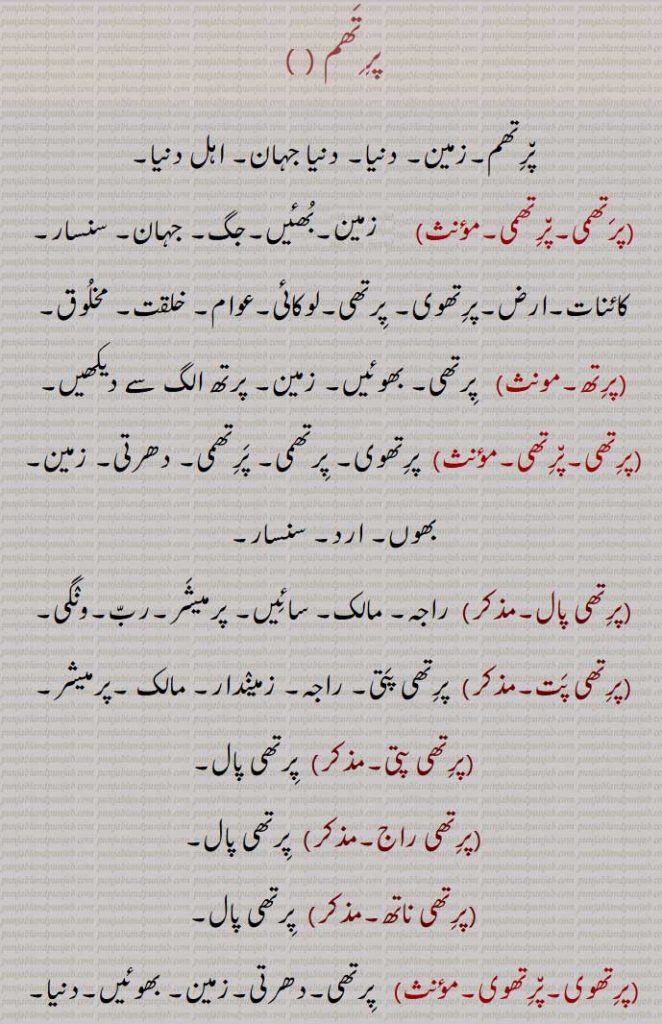 پرِتَھم ( )
پِّرتھم۔زمین۔ دنیا۔ دنیا جہان۔ اہل دنیا۔
(پرَتھمی۔پِّرتھمی۔مؤنث) زمین۔بُھئیں۔جگ۔ جہان۔ سنسار۔
کائنات۔ارض۔پرِتھوی۔ پِرتھی۔لوکائی۔عوام۔ خلقت۔ مخلُوق۔
(پرِتھ۔مونث) پِرتھی۔ بھوئیں۔ زمین۔ پرتھ الگ سے دیکھیں۔
(پرِتھی۔پِّرتھی۔مؤنث) پرِتھوی۔ پِرتھمی۔ پَرِتھمی۔ دھرتی۔ زمین۔
بھوں۔ ارد۔ سنسار۔
(پرِتھی پال۔مذکر) راجہ۔ مالک۔ سائیں۔ پرمیشَر۔ربّ۔ونگی۔
(پرِتھی پَت۔مذکر) پرِتھی پَتی۔ راجہ۔ زمیندار۔ مالک ۔پرمیشر۔
(پرِتھی پتی۔مذکر) پِرتھی پال۔
(پرِتھی راج۔مذکر) پِرتھی پال۔
(پرِتھی ناتھ۔مذکر) پِرتھی پال۔
(پرِتھوی۔پِّرتھوی۔مؤنث) پِرتھی۔دھرتی۔زمین۔ بھوئیں۔دنیا۔